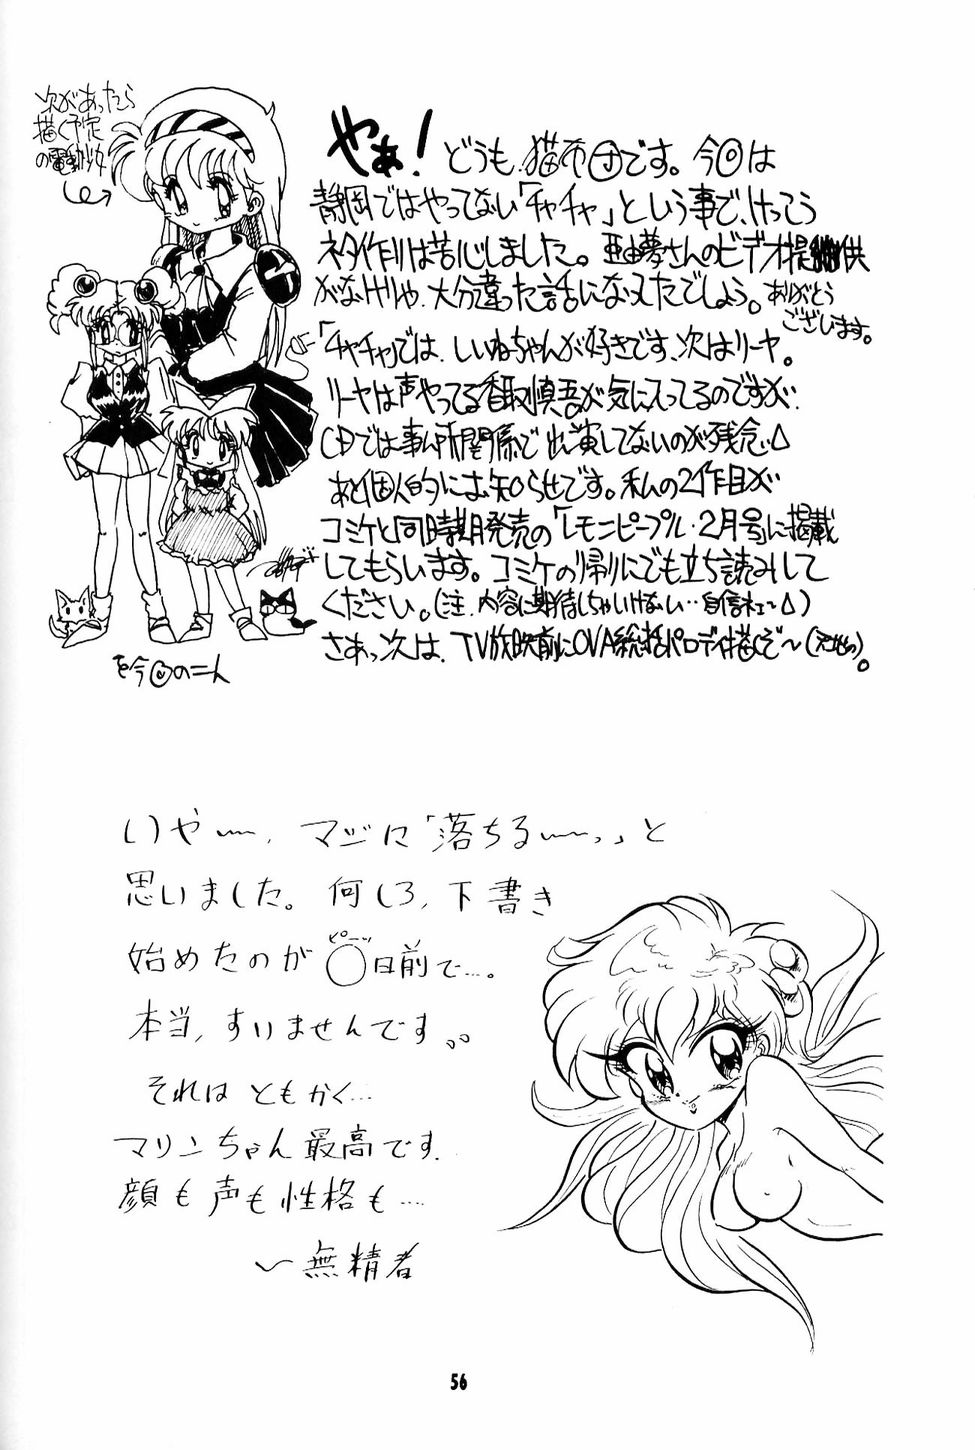 次があったら
描く予定
の電動少女
やあ!どうも、猫布団です。今回は
静岡ではやってない「チャチャ」という事で、けっこう
ネタ作りは苦心しました。亜由夢さんのビデオ提供
がなけりゃ、大分違った話になってたでしょう。ありがとう
ございます。
「チャチャ」では、しいねちゃんが好きです、次はリーヤ。
リーヤは声やってる香取慎吾が気に入ってるのですが、
CDでは事ム所関係で出演してないのが残念。
あと個人的にはお知らせです。私の2作目が
コミケと同時期発売の「レモンピープル・2月号」に掲載
してもらいます。コミケの帰りにでも立ち読みして
ください。(注.内容に期待しちゃいけない…自信ネェーン)
さぁっ次は、TV放映前にOVA総括パロディ描くぞ〜
を今回の二人
いやー、マジに「落ちるーっ」と
思いました。何しろ、下書き
始めたのが◯日前で…。
ピーッ
本当、すいませんです。。
それは ともかく…
マリンちゃん最高です.
顔も声も性格も…
〜無精者
56